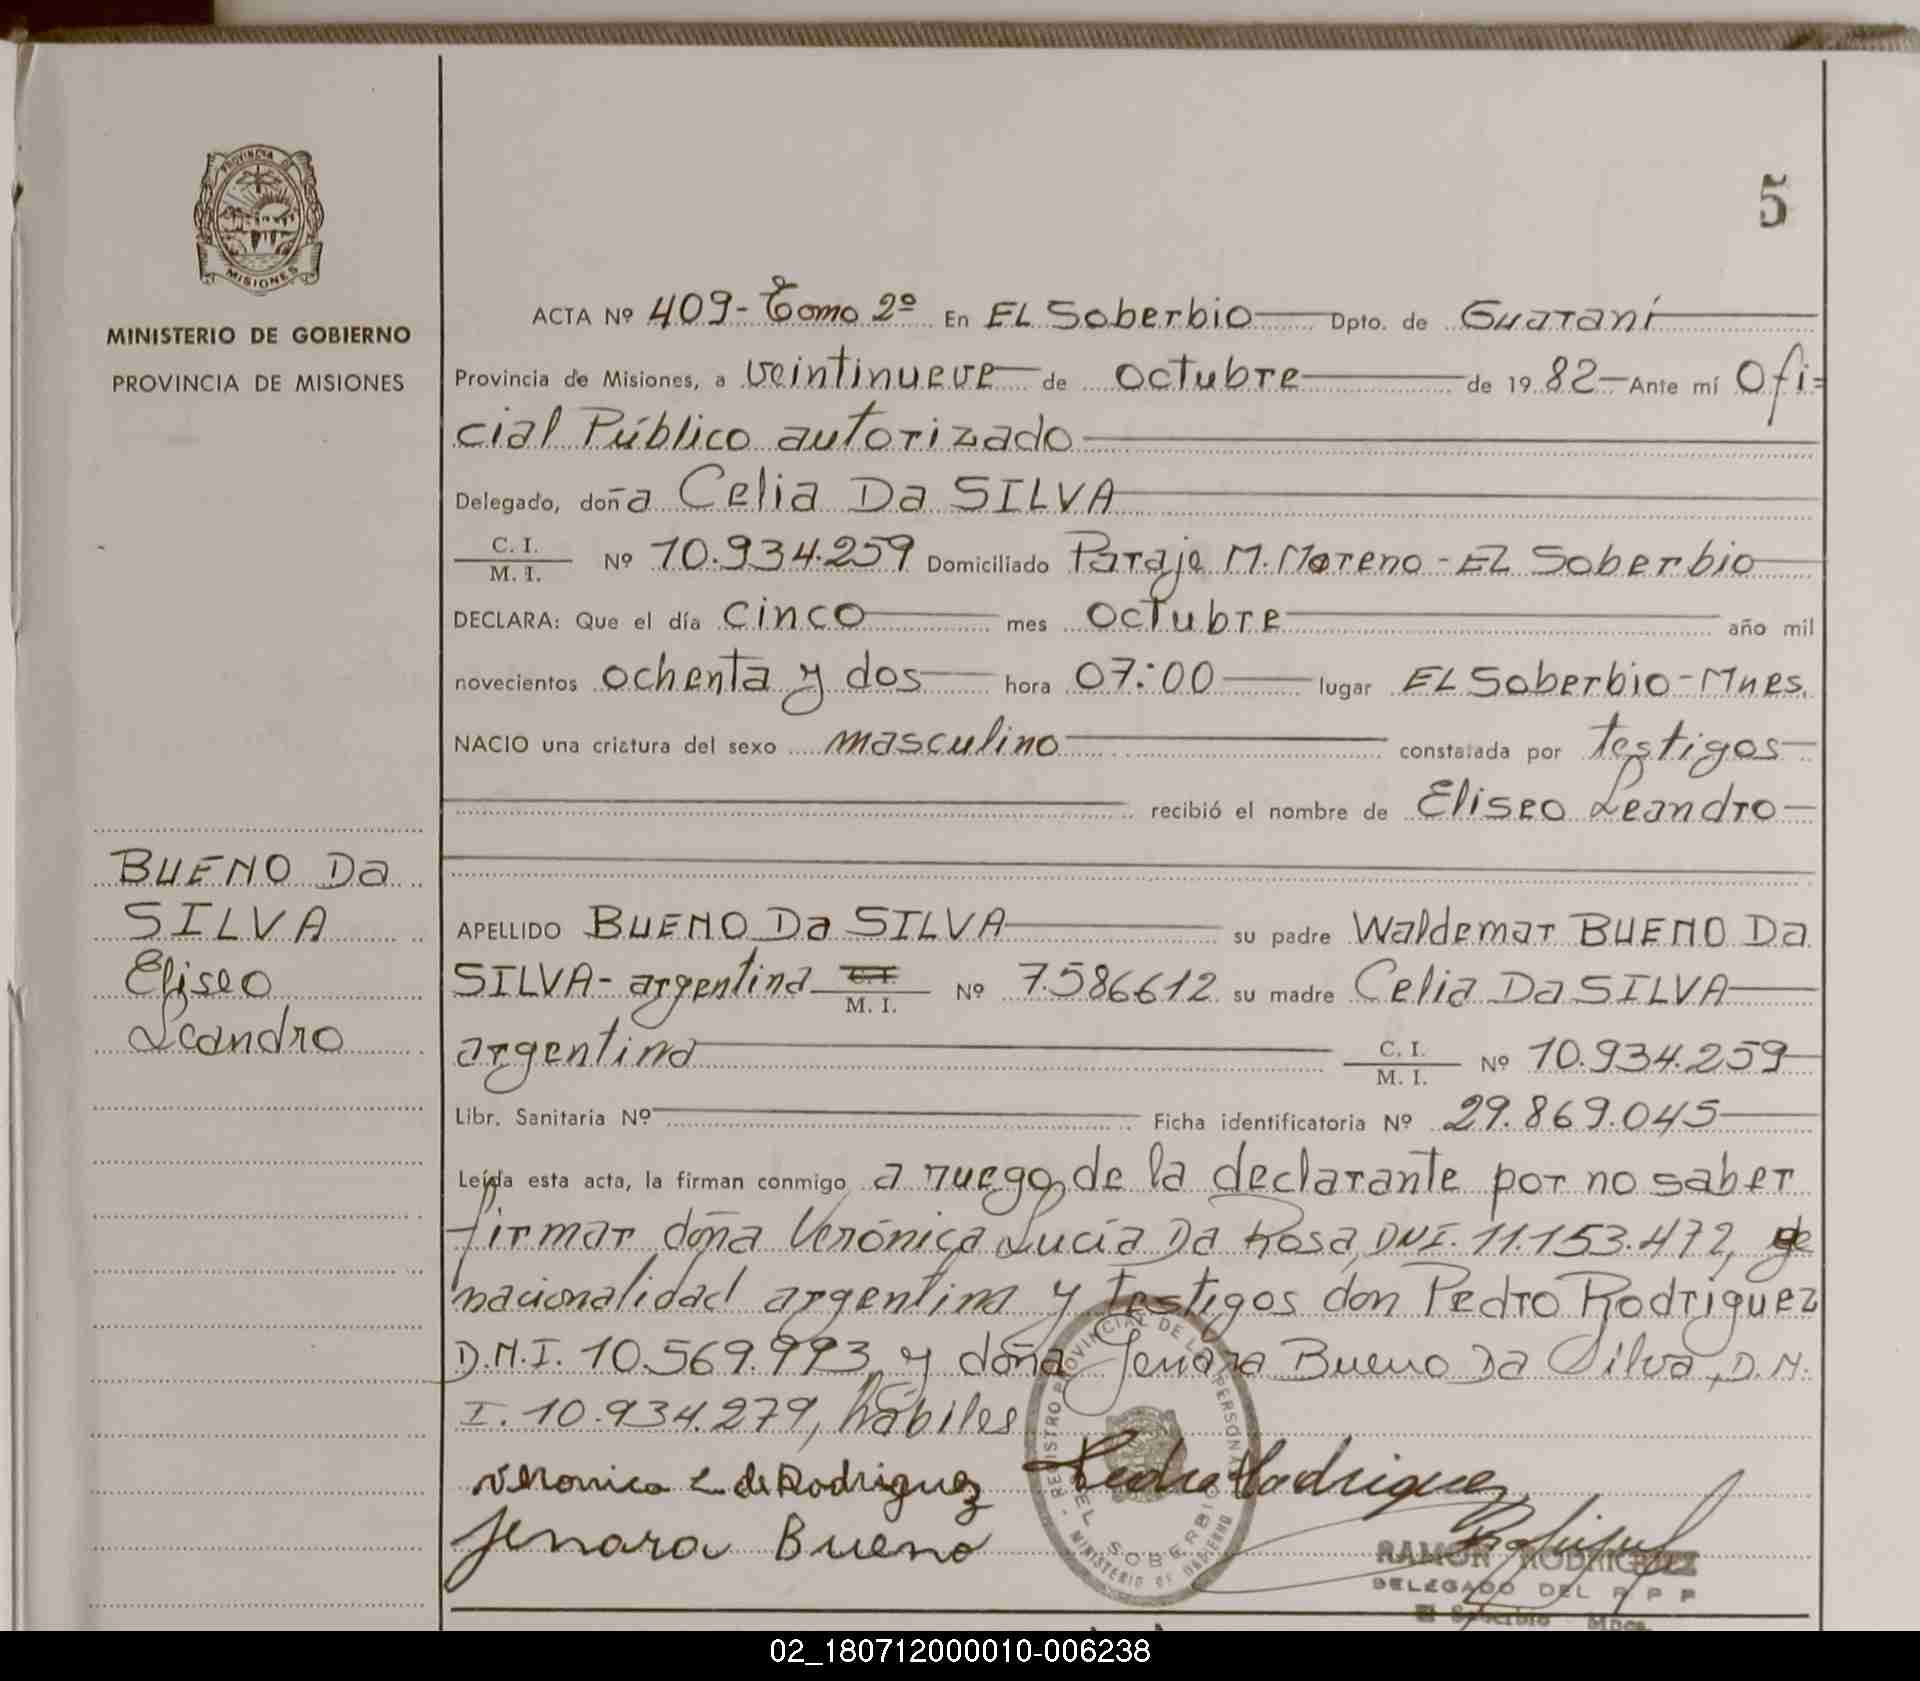 5
PROVINCIA DE
MISIONES
MINISTERIO DE GOBIERNO
PROVINCIA DE MISIONES
ACTA Nº 409- Tomo 2º En EL Soberbio Dpto. de Guaraní
Provincia de Misiones, a veintinueve de octubre de 19 82 Ante mí Ofi-
cial Público autorizado
Delegado, doña Celia Da SILVA
C. I. / M. I. Nº 10.934.259 Domiciliado Paraje M. Moreno - EL Soberbio
DECLARA: Que el día cinco mes octubre año mil
novecientos ochenta y dos hora 07:00 lugar EL Soberbio-Mnes.
NACIO una criatura del sexo masculino constatada por testigos
recibió el nombre de Eliseo Leandro
BUENO Da
SILVA
Eliseo
Leandro
APELLIDO BUENO Da SILVA su padre Waldemar BUENO Da
SILVA- argentina C. I. / M. I. Nº 7.586612 su madre Celia Da SILVA
argentina C. I. / M. I. Nº 10.934.259
Libr. Sanitaria Nº Ficha identificatoria Nº 29.869.045
Leída esta acta, la firman conmigo a ruego de la declarante por no saber
firmar doña Verónica Lucía Da Rosa, DNI. 11.153.472, de
nacionalidad argentina y testigos don Pedro Rodriguez
D.N.I. 10.569.993 y doña Jenara Bueno Da Silva, D.N.
I. 10.934.279, hábiles
Veronica L de Rodriguez Pedro Rodriguez
Jenara Bueno
REGISTRO PROVINCIAL DE LAS PERSONAS
EL SOBERBIO
MINISTERIO DE GOBIERNO
RAMON RODRIGUEZ
DELEGADO DEL R P P
El Soberbio Mnes.
02_180712000010-006238